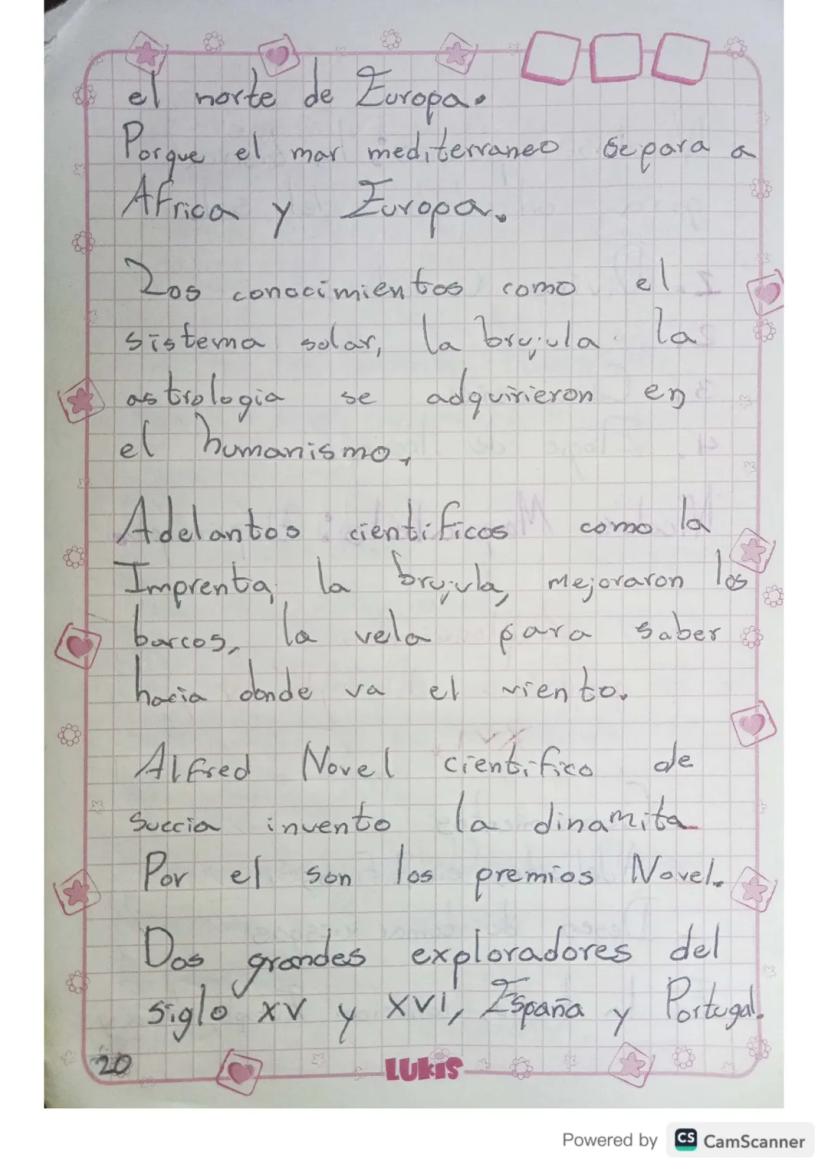 el norte de Europa.
Porque el mar mediterraneo separa a
Africa y Europa.
Los conocimientos como el
sistema solar, la brujula la
astrologia se adquirieron en
el humanismo.
Adelantos cientificos como la
Imprenta, la brujula, mejoraron los
barcos, la vela para saber
hacia donde va el viento.
Alfred Novel cientifico de
Suecia invento la dinamita
Por el son los premios Novel.
Dos grandes exploradores del
siglo XV y XVI, España y Portugal.
20
LUKIS
Powered by CS CamScanner